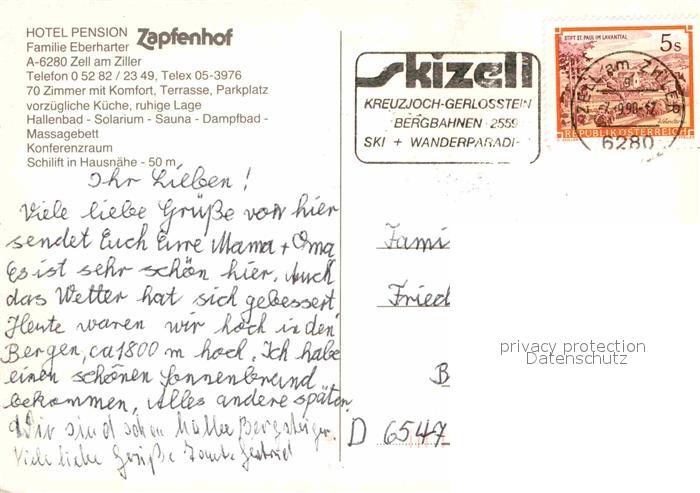 HOTEL PENSION Zapfenhof
Familie Eberharter
A-6280 Zell am Ziller
Telefon 0 52 82 / 23 49, Telex 05-3976
70 Zimmer mit Komfort, Terrasse, Parkplatz
vorzügliche Küche, ruhige Lage
Hallenbad - Solarium - Sauna - Dampfbad -
Massagebett
Konferenzraum
Schilift in Hausnähe - 50 m
Ihr Lieben!
Viele liebe Grüße von hier
sendet Euch Eure Mama + Oma
Es ist sehr schön hier. Auch
das Wetter hat sich gebessert.
Heute waren wir hoch in den
Bergen, ca 1800 m hoch. Ich habe
einen schönen Sonnenbrand
bekommen, Alles andere später.
Wir sind schon halbe Bergsteiger.
Viele liebe Grüße Tante Gertrud
skizell
KREUZJOCH-GERLOSSTEIN
BERGBAHNEN 2559
SKI + WANDERPARADI
STIFT ST. PAUL IM LAVANTTAL
5s
REPUBLIK ÖSTERREICH
ZELL am ZILLER
6280
Fami
Fried
B
D 6547
privacy protection
Datenschutz